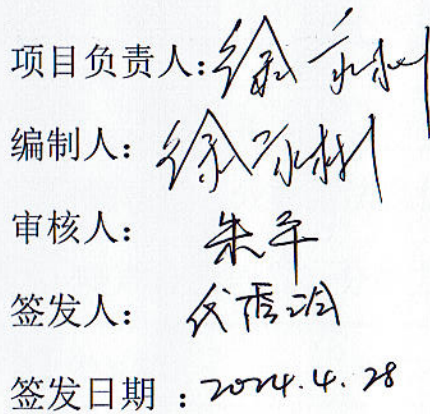 项目负责人:徐永彬
编制人：徐永彬
审核人： 朱平
签发人：
签发日期 ：2024.4.28